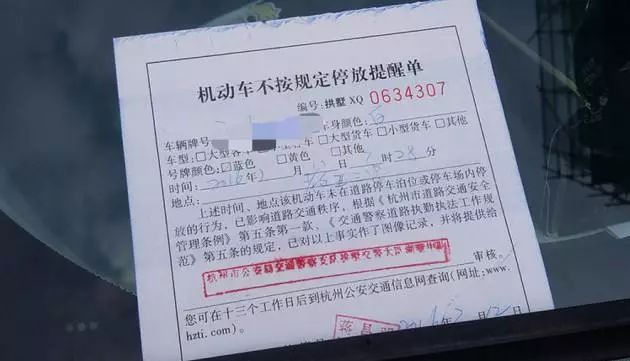 机动车不按规定停放提醒单
编号：拱墅 XQ 0634307
车辆牌号 车身颜色：
车型：□大型客车 □大型货车 □小型货车 □其他
号牌颜色：☑蓝色 □黄色 □其他
时间： 月 日 时28分
地点：
上述时间、地点该机动车未在道路停车泊位或停车场内停
放的行为，已影响道路交通秩序，根据《杭州市道路交通安全
管理条例》第五条第一款、《交通警察道路执勤执法工作规
范》第五条的规定，已对以上事实作了图像记录，并将提供给
杭州市公安局交通警察支队拱墅交警大队
审核。
您可在十三个工作日后到杭州公安交通信息网查询（网址：www.
hzti.com）。
蒋昌
年7月12日